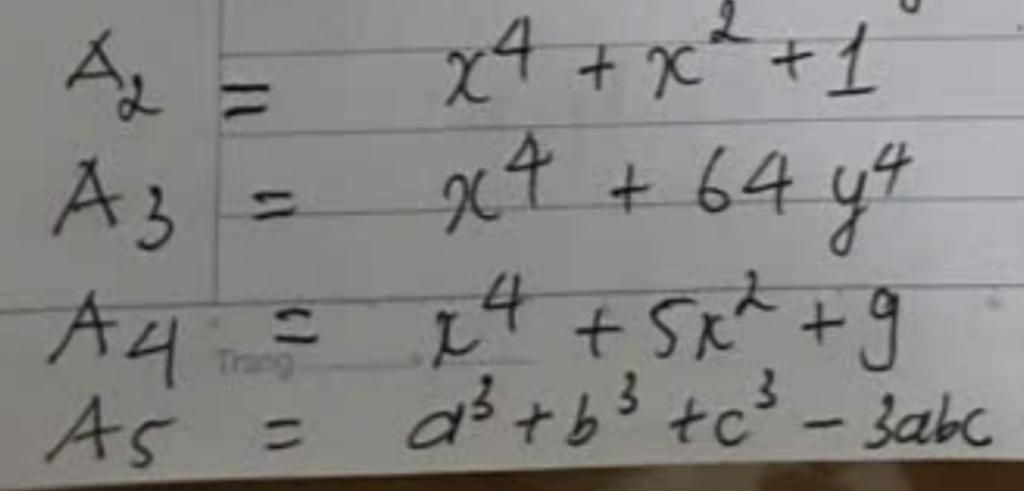 A₂ = x⁴ + x² + 1
A₃ = x⁴ + 64 y⁴
A₄ = x⁴ + 5x² + 9
Trang
A₅ = a³ + b³ + c³ − 3abc